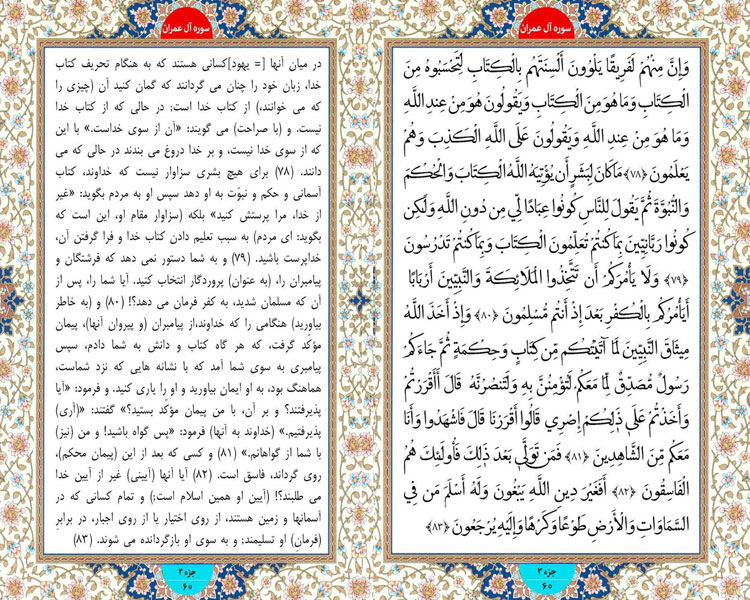 سوره آل عمران
وَإِنَّ مِنْهُمْ لَفَرِيقًا يَلْوُونَ أَلْسِنَتَهُم بِالْكِتَابِ لِتَحْسَبُوهُ مِنَ
الْكِتَابِ وَمَا هُوَ مِنَ الْكِتَابِ وَيَقُولُونَ هُوَ مِنْ عِندِ اللَّهِ
وَمَا هُوَ مِنْ عِندِ اللَّهِ وَيَقُولُونَ عَلَى اللَّهِ الْكَذِبَ وَهُمْ
يَعْلَمُونَ ﴿۷۸﴾ مَا كَانَ لِبَشَرٍ أَن يُؤْتِيَهُ اللَّهُ الْكِتَابَ وَالْحُكْمَ
وَالنُّبُوَّةَ ثُمَّ يَقُولَ لِلنَّاسِ كُونُوا عِبَادًا لِّي مِن دُونِ اللَّهِ وَلَكِن
كُونُوا رَبَّانِيِّينَ بِمَا كُنتُمْ تُعَلِّمُونَ الْكِتَابَ وَبِمَا كُنتُمْ تَدْرُسُونَ
﴿۷۹﴾ وَلَا يَأْمُرَكُمْ أَن تَتَّخِذُوا الْمَلَائِكَةَ وَالنَّبِيِّينَ أَرْبَابًا
أَيَأْمُرُكُم بِالْكُفْرِ بَعْدَ إِذْ أَنتُم مُّسْلِمُونَ ﴿۸۰﴾ وَإِذْ أَخَذَ اللَّهُ
مِيثَاقَ النَّبِيِّينَ لَمَا آتَيْتُكُم مِّن كِتَابٍ وَحِكْمَةٍ ثُمَّ جَاءَكُمْ
رَسُولٌ مُّصَدِّقٌ لِّمَا مَعَكُمْ لَتُؤْمِنُنَّ بِهِ وَلَتَنصُرُنَّهُ قَالَ أَأَقْرَرْتُمْ
وَأَخَذْتُمْ عَلَى ذَلِكُمْ إِصْرِي قَالُوا أَقْرَرْنَا قَالَ فَاشْهَدُوا وَأَنَا
مَعَكُم مِّنَ الشَّاهِدِينَ ﴿۸۱﴾ فَمَن تَوَلَّى بَعْدَ ذَلِكَ فَأُولَئِكَ هُمُ
الْفَاسِقُونَ ﴿۸۲﴾ أَفَغَيْرَ دِينِ اللَّهِ يَبْغُونَ وَلَهُ أَسْلَمَ مَن فِي
السَّمَاوَاتِ وَالْأَرْضِ طَوْعًا وَكَرْهًا وَإِلَيْهِ يُرْجَعُونَ ﴿۸۳﴾
جزء ۳
۶۰
سوره آل عمران
در میان آنها [= یهود]کسانی هستند که به هنگام تحریف کتاب
خدا، زبان خود را چنان می گردانند که گمان کنید آن (چیزی را
که می خوانند)، از کتاب خدا است; در حالی که از کتاب خدا
نیست. و (با صراحت) می گویند: «آن از سوی خداست.» با این
که از سوی خدا نیست، و بر خدا دروغ می بندند در حالی که می
دانند. (۷۸) برای هیچ بشری سزاوار نیست که خداوند، کتاب
آسمانی و حکم و نبوّت به او دهد سپس او به مردم بگوید: «غیر
از خدا، مرا پرستش کنید.» بلکه (سزاوار مقام او، این است که
بگوید: ای مردم) به سبب تعلیم دادن کتاب خدا و فرا گرفتن آن،
خداپرست باشید. (۷۹) و نه به شما دستور نمی دهد که فرشتگان و
پیامبران را، (به عنوان) پروردگار انتخاب کنید. آیا شما را، پس از
آن که مسلمان شدید، به کفر فرمان می دهد؟! (۸۰) و (به خاطر
بیاورید) هنگامی را که خداوند،از پیامبران (و پیروان آنها)، پیمان
مؤکد گرفت، که هر گاه کتاب و دانش به شما دادم، سپس
پیامبری به سوی شما آمد که با نشانه هایی که نزد شماست،
هماهنگ بود، به او ایمان بیاورید و او را یاری کنید. و فرمود: «آیا
پذیرفتند؟ و بر آن، با من پیمان مؤکد بستید؟» گفتند: «(آری)
پذیرفتیم.» (خداوند به آنها) فرمود: «پس گواه باشید! و من (نیز)
با شما از گواهانم.» (۸۱) و کسی که بعد از این (پیمان محکم)،
روی گرداند، فاسق است. (۸۲) آیا آنها (آیینی) غیر از آیین خدا
می طلبند؟! (آیین او همین اسلام است;) و تمام کسانی که در
آسمانها و زمین هستند، از روی اختیار یا از روی اجبار، در برابرِ
(فرمانِ) او تسلیمند; و به سوی او بازگردانده می شوند. (۸۳)
جزء ۳
۶۰